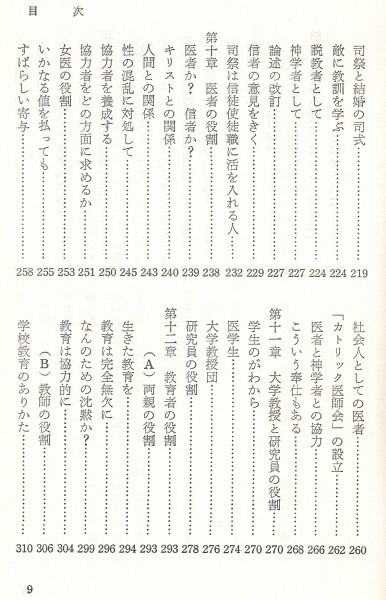 目次
司祭と結婚の司式……219
敵に教訓を学ぶ……224
説教者として……224
神学者として……227
論述の改訂……227
信者の意見をきく……229
司祭は信徒使徒職に活を入れる人……232
第十章 医者の役割……238
医者か? 信者か?……239
キリストとの関係……240
人間との関係……243
性の混乱に対処して……245
協力者を養成する……250
協力者をどの方面に求めるか……251
女医の役割……253
いかなる値を払っても……255
すばらしい寄与……258
社会人としての医者……260
「カトリック医師会」の設立……262
医者と神学者との協力……266
こういう奉仕もある……268
第十一章 大学教授と研究員の役割……270
学生のがわから……270
医学生……274
大学教授団……276
研究員の役割……278
第十二章 教育者の役割……293
(A) 両親の役割……293
生きた教育を……294
教育は完全無欠に……296
なんのための沈黙か?……299
教育は協力的に……304
(B) 教師の役割……306
学校教育のありかた……310
9